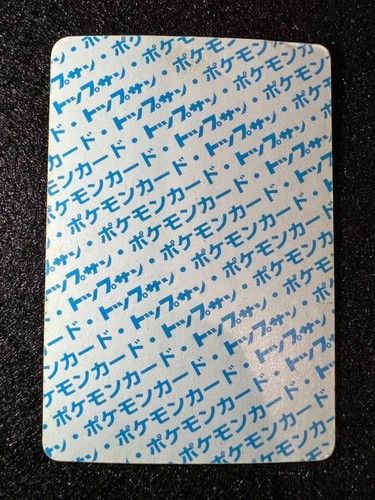 サン・ポケモン
トップサン・ポケモンカ
ド・トップサン・ポケモンカード
カード・トップサン・ポケモンカード
モンカード・トップサン・ポケモンカ
ポケモンカード・トップサン・ポケモ
・ポケモンカード・トップサン・ポケ
サン・ポケモンカード・トップサン・
トップサン・ポケモンカード・トップサン
・トップサン・ポケモンカード・トップ
カード・トップサン・ポケモンカード・
モンカード・トップサン・ポケモンカード
ポケモンカード・トップサン・ポケモンカ
・ポケモンカード・トップサン・ポケモ
ポケモンカード・トップサン
ポケモンカード